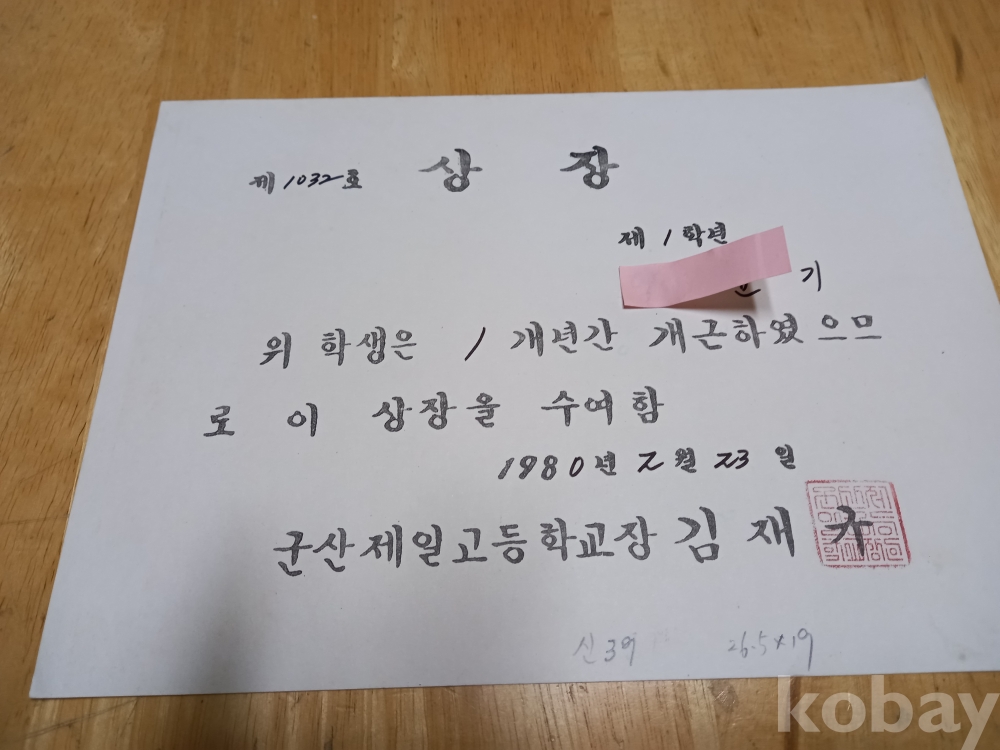 제 1032호 상 장
제 1 학년
기
위 학생은 1 개년간 개근하였으므
로 이 상장을 수여함
1980년 2월 23일
군산제일고등학교장 김재규
신39 26.5x19
kobay